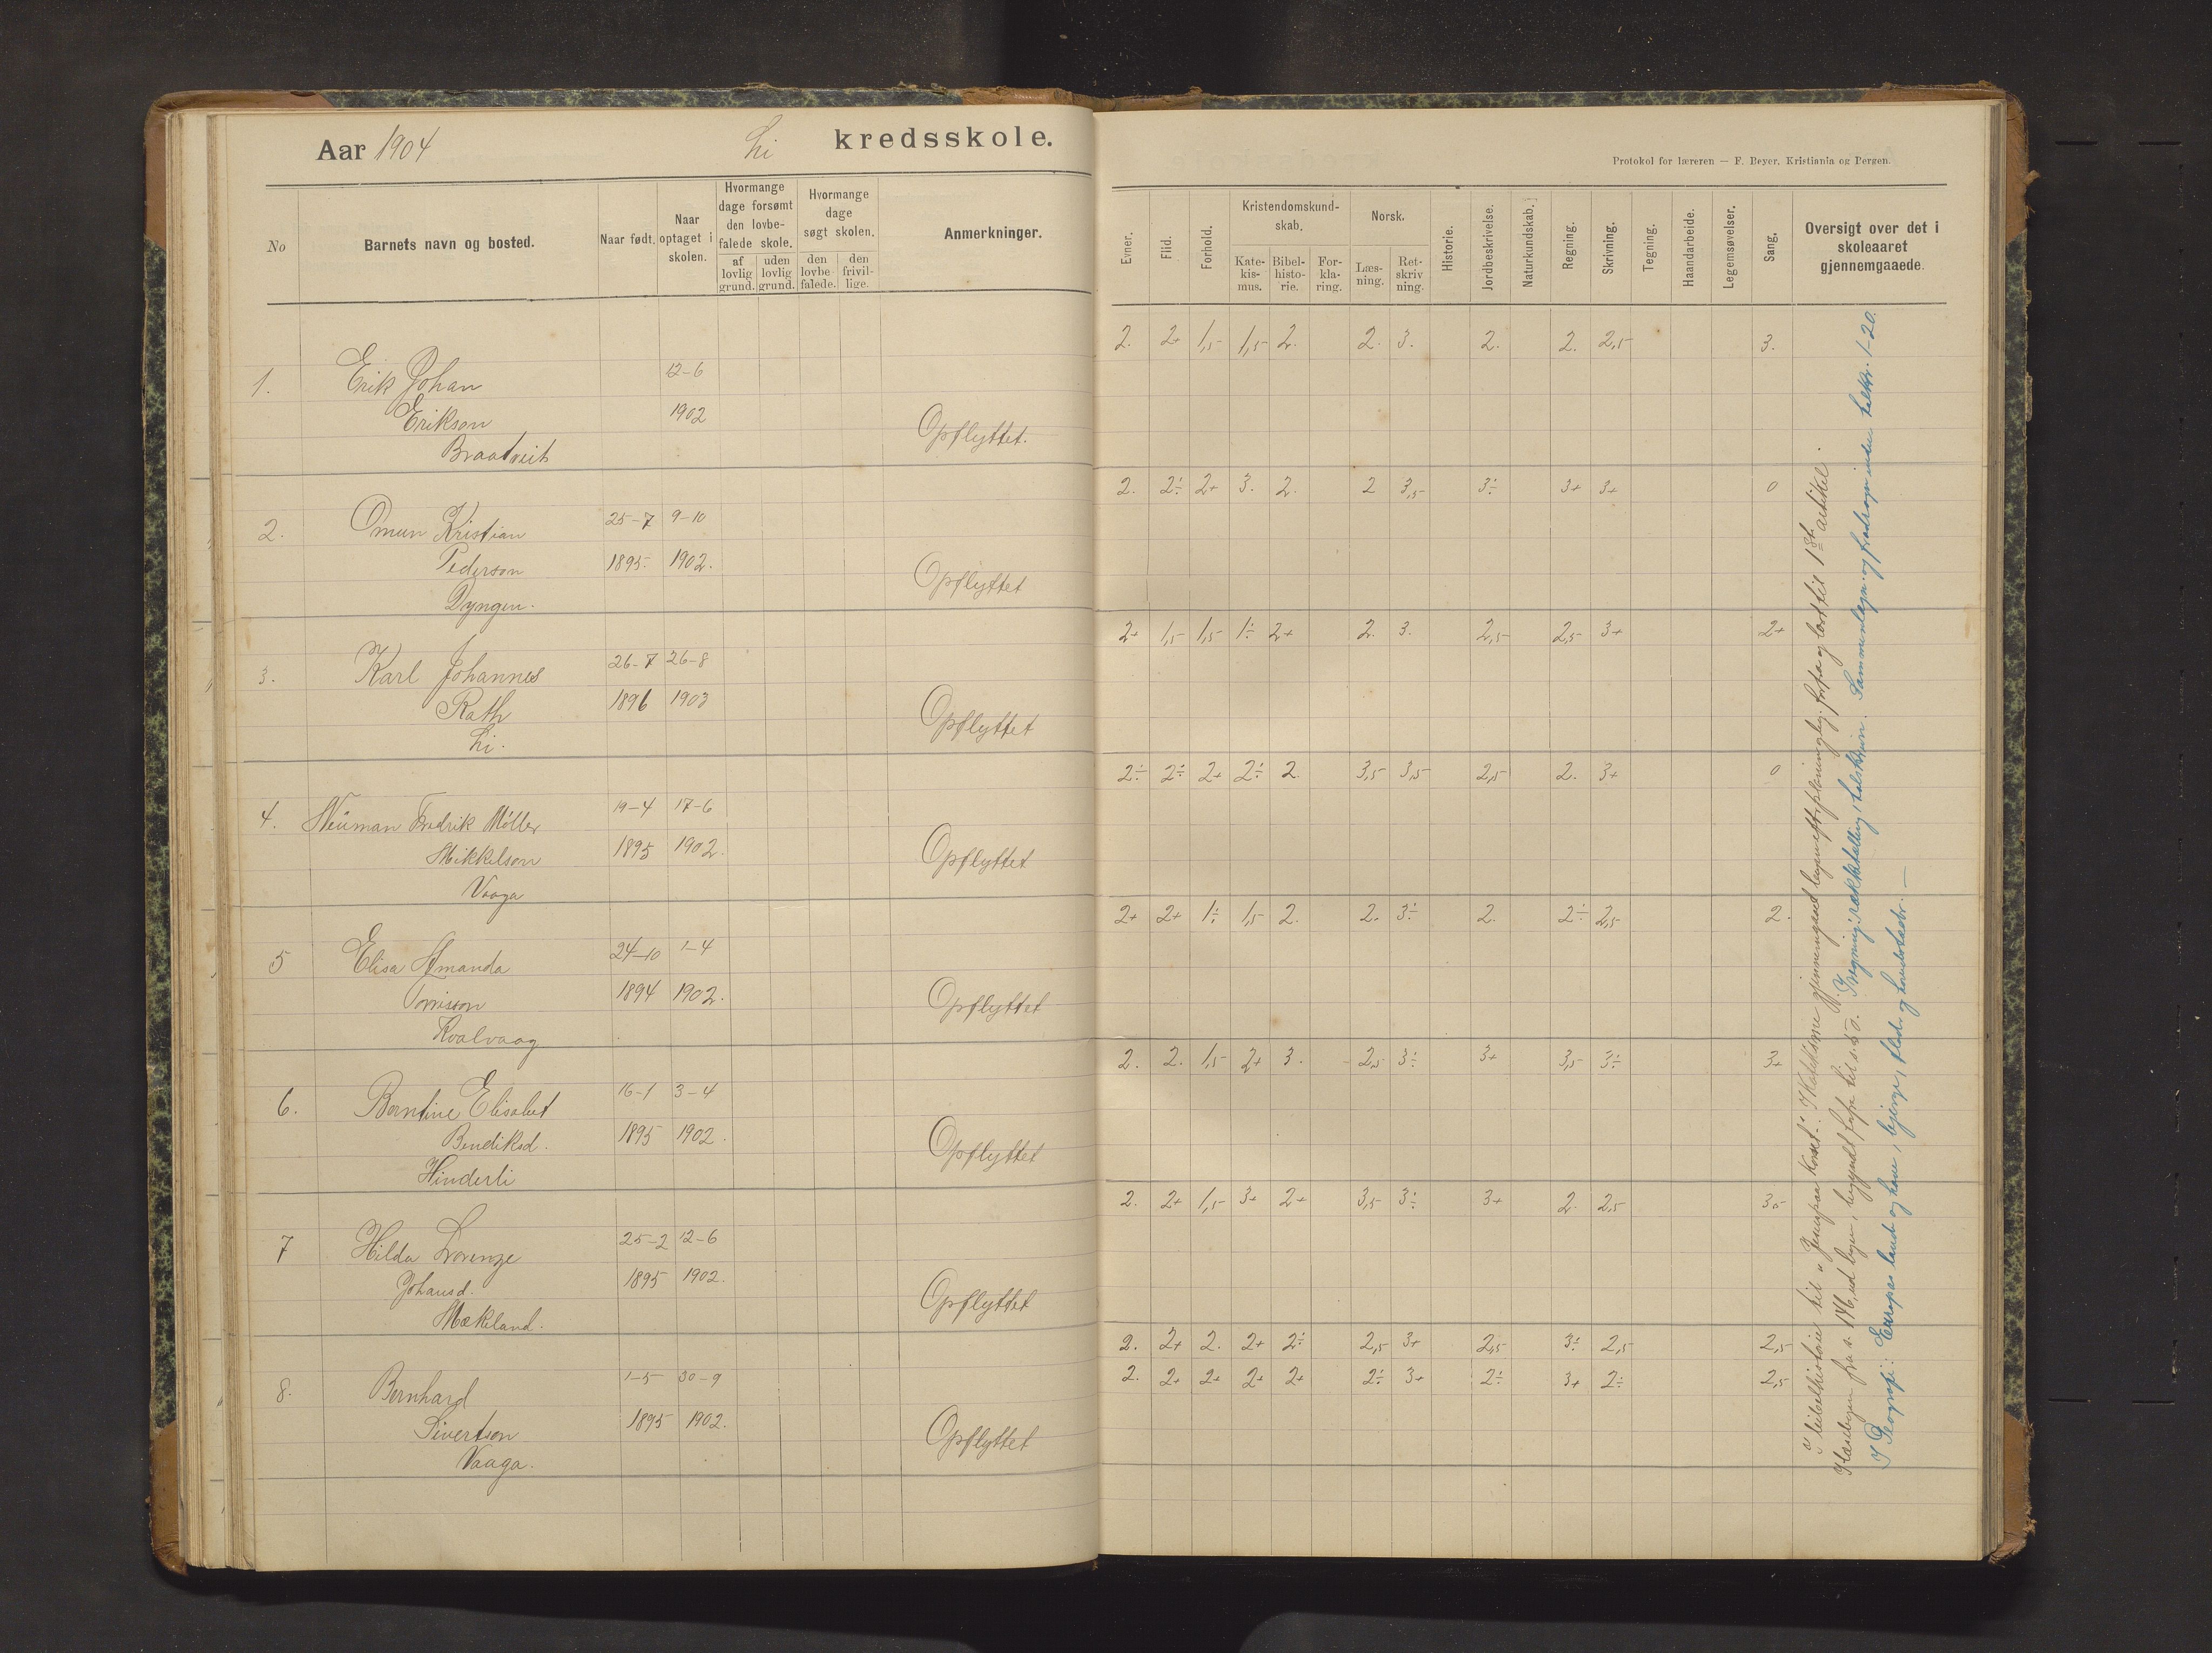 Aar 1904 Li kredsskole.
No Barnets navn og bosted. Naar født. Naar optaget i skolen. Hvormange dage forsømt den lovbefalede skole. af lovlig grund. uden lovlig grund. Hvormange dage søgt skolen. den lovbefalede. den frivillige. Anmerkninger.
1. Erik Johan 12-6
Erikson 1902 Opflyttet.
Braatveit
2. Omun Kristian 25-7 9-10
Pederson 1895. 1902. Opflyttet
Dyngen.
3. Karl Johannes 26-7 26-8
Rath 1896 1903 Opflyttet
Li.
4. Neuman Fredrik Møller 19-4 17-6
Mikkelson 1895 1902. Opflyttet
Vaaga
5 Elisa Amanda 24-10 1-4
Tørrisson 1894 1902. Opflyttet
Kvalvaag
6. Berntine Elisabet 16-1 3-4
Bendiksd. 1895 1902. Opflyttet
Hinderli
7 Hilda Lorenze 25-2 12-6
Johansd. 1895 1902. Opflyttet
Mækeland.
8. Bernhard 1-5 30-9
Sivertson 1895 1902. Opflyttet
Vaaga.
Protokol for læreren — F. Beyer, Kristiania og Bergen.
Evner. Flid. Forhold. Kristendomskundskab. Katekismus. Bibelhistorie. Forklaring. Norsk. Læsning. Retskrivning. Historie. Jordbeskrivelse. Naturkundskab. Regning. Skrivning. Tegning. Haandarbeide. Legemsøvelser. Sang. Oversigt over det i skoleaaret gjennemgaaede.
2. 2+ 1,5 1,5 2. 2. 3. 2. 2. 2,5 3.
2. 2÷ 2+ 3. 2. 2 3,5 3÷ 3+ 3+ 0
2+ 1,5 1,5 1÷ 2+ 2. 3. 2,5 2,5 3+ 2+
2÷ 2÷ 2+ 2÷ 2. 3,5 3,5 2,5 2. 3+ 0
2+ 2+ 1÷ 1,5 2. 2. 3÷ 2. 2÷ 2,5 2.
2. 2. 1,5 2+ 3. 2,5 3÷ 3+ 3,5 3÷ 3+
2. 2+ 1,5 3+ 2+ 3,5 3÷ 3+ 2. 2,5 3,5
2. 2+ 2. 2+ 2÷ 2,5 3+ 2,5 3÷ 2,5 2,5
2. 2+ 2+ 2+ 2+ 2÷ 3+ 2÷ 3+ 2÷ 2,5
I bibelhistorie til "Jesus paa korset". I katekisme gjennemgaaet og læst til 1ste artikel.
I læsebogen fra s. 146 ud bogen, begyndt forfra til s. 50. I regning: rækketelling, talskrivn. Sammenlægn. og fradragn. inden talkr. 1-20.
I Geografi: Europas lande og have, bjerge, floder og hovedstæder.—